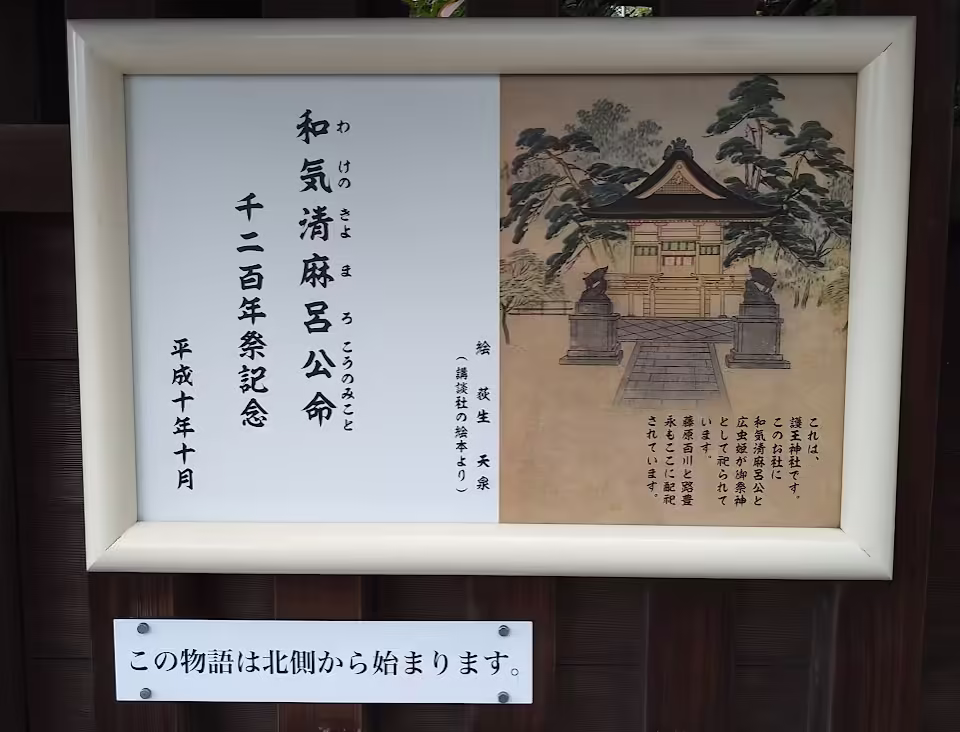 これは、
護王神社です。
このお社に
和気清麻呂公と
広虫姫が御祭神
として祀られて
います。
藤原百川と路豊
永もここに配祀
されています。
絵 荻生 天泉
(講談社の絵本より)
和気清麻呂公命
わけのきよまろこうのみこと
千二百年祭記念
平成十年十月
この物語は北側から始まります。